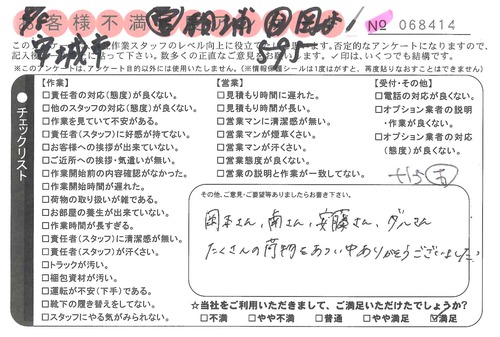 客様不満 № 068414
安城市
作業スタッフのレベル向上に役立て
否定的なアンケートになりますので、
数多くの正直なご意見をお願いします。✓印は、いくつでも結構です。
※このアンケートは、アンケート目的以外には使用いたしません。(※情報保護シールは1度はがすと、再度貼りなおすことはできません)
チェックリスト
【作業】
□責任者の対応(態度)が良くない。
□他のスタッフの対応(態度)が良くない。
□作業を見ていて不安がある。
□責任者(スタッフ)に好感が持てない。
□お客様への挨拶が出来ていない。
□ご近所への挨拶・気遣いが無い。
□作業開始前の内容確認がなかった。
□作業開始時間が遅れた。
□荷物の取り扱いが雑である。
□お部屋の養生が出来ていない。
□作業時間が長すぎる。
□責任者(スタッフ)に清潔感が無い。
□責任者(スタッフ)が汗くさい。
□トラックが汚い。
□梱包資材が汚い。
□運転が不安(下手)である。
□靴下の履き替えをしてない。
□スタッフにやる気がみられない。
【営業】
□見積もり時間に遅れた。
□見積もり時間が長い。
□営業マンに清潔感が無い。
□営業マンが煙草くさい。
□営業マンが汗くさい。
□営業態度が良くない。
□営業の説明と作業が一致してない。
【受付・その他】
□電話の対応が良くない。
□オプション業者の説明
・作業が良くない。
□オプション業者の対応
(態度)が良くない。
その他、ご意見・ご要望等ありましたらお書き下さい。
岡本さん、南さん、安藤さん、ダルさん
たくさんの荷物をあつい中ありがとうございました。
☆当社をご利用いただきまして、ご満足いただけたでしょうか?
□不満 □やや不満 □普通 □やや満足 ☑満足